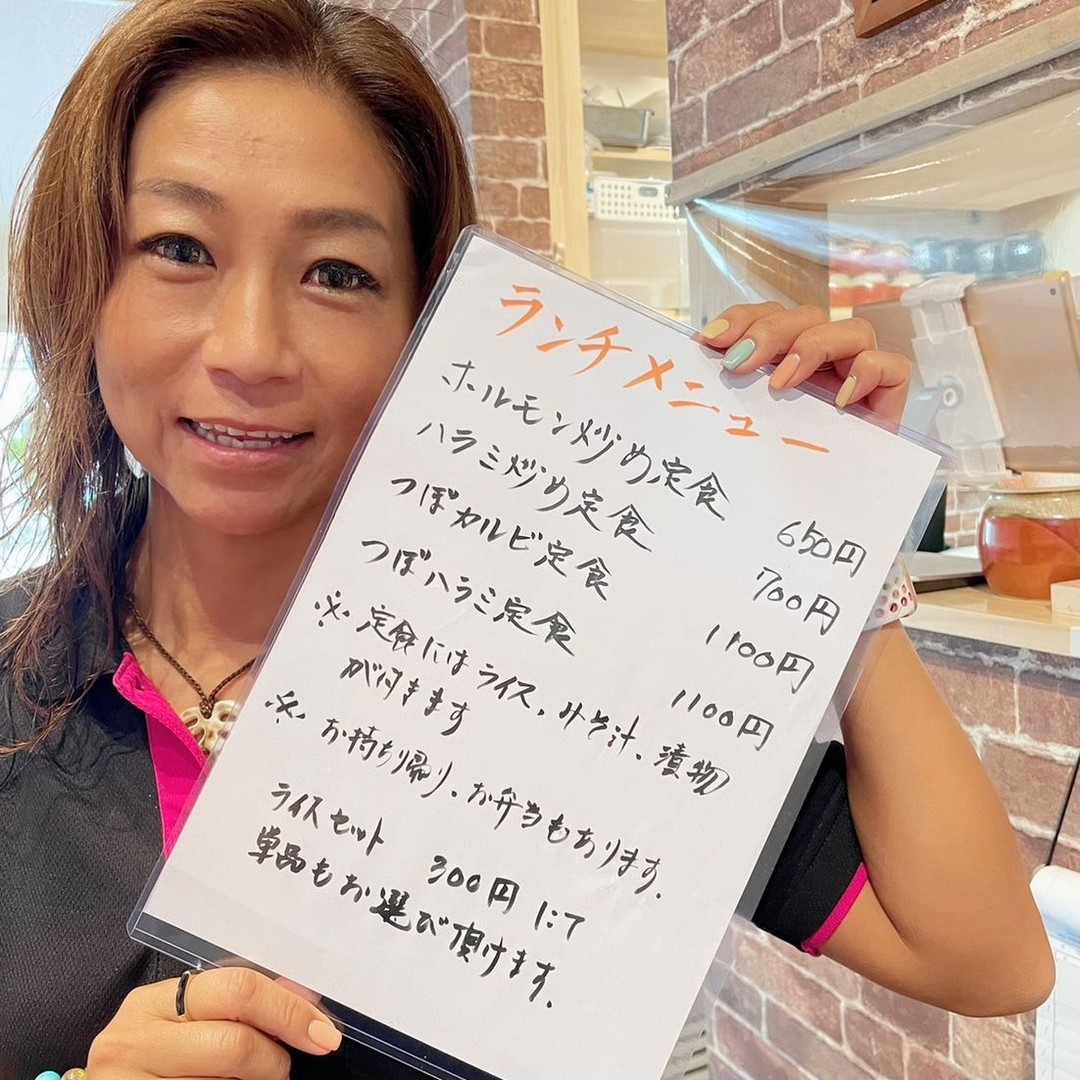 ランチメニュー
ホルモン炒め定食 650円
ハラミ炒め定食 700円
つぼカルビ定食 1100円
つぼハラミ定食 1100円
※ 定食にはライス、みそ汁、漬物
が付きます
※ お持ち帰り、お弁当もあります。
ライスセット 300円にて
単品もお選び頂けます。